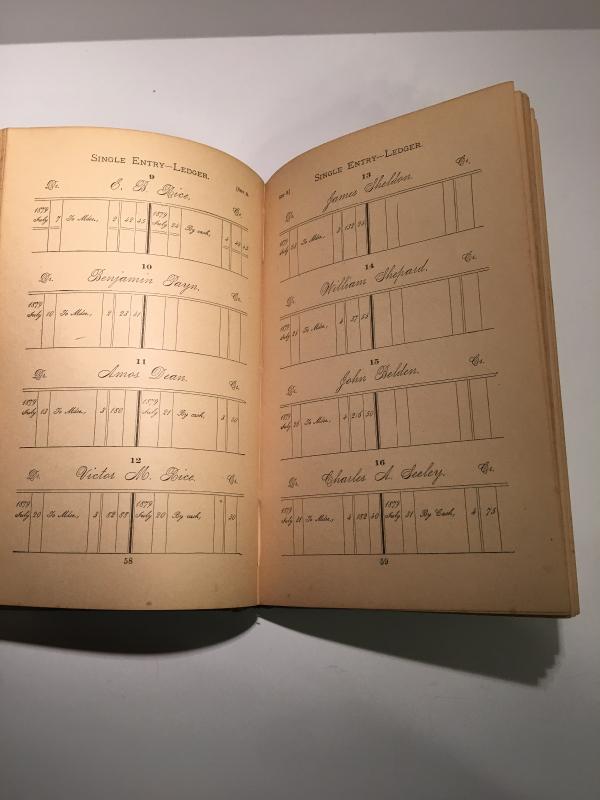 SINGLE ENTRY—LEDGER.
9
Dr. E. B. Rice. Cr.
1879 1879
July 7 To Mdse., 2 42 45 July 24 By cash, 4 42 45
10
Dr. Benjamin Cr.
1879
July 10 To Mdse., 2 25 41
11
Dr. Amos Dean. Cr.
1879 1879
July 13 To Mdse., 3 180 July 21 By cash, 3 50
12
Dr. Victor M. Rice. Cr.
1879 1879
July 20 To Mdse., 3 52 88 July 20 By cash, 30
58
SINGLE ENTRY—LEDGER.
13
Dr. James Sheldon. Cr.
1879
July To Mdse., 3 152
14
Dr. William Shepard. Cr.
1879
July To Mdse., 4 37
15
Dr. John Belden. Cr.
1879
July To Mdse., 4 216 50
16
Dr. Charles A. Seeley. Cr.
1879 1879
July 31 To Mdse., 4 182 50 July 31 By Cash, 4 75
59